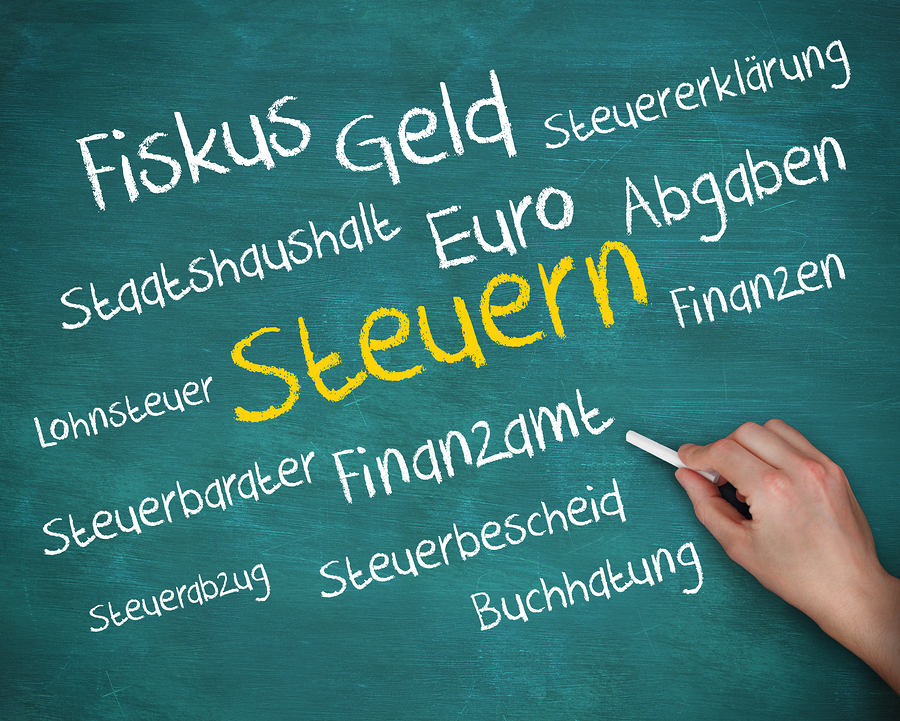 Fiskus
Geld
Steuererklärung
Staatshaushalt
Euro
Abgaben
Steuern
Finanzen
Lohnsteuer
Finanzamt
Steuerbarater
Steuerbescheid
Steuerabzug
Buchhatung